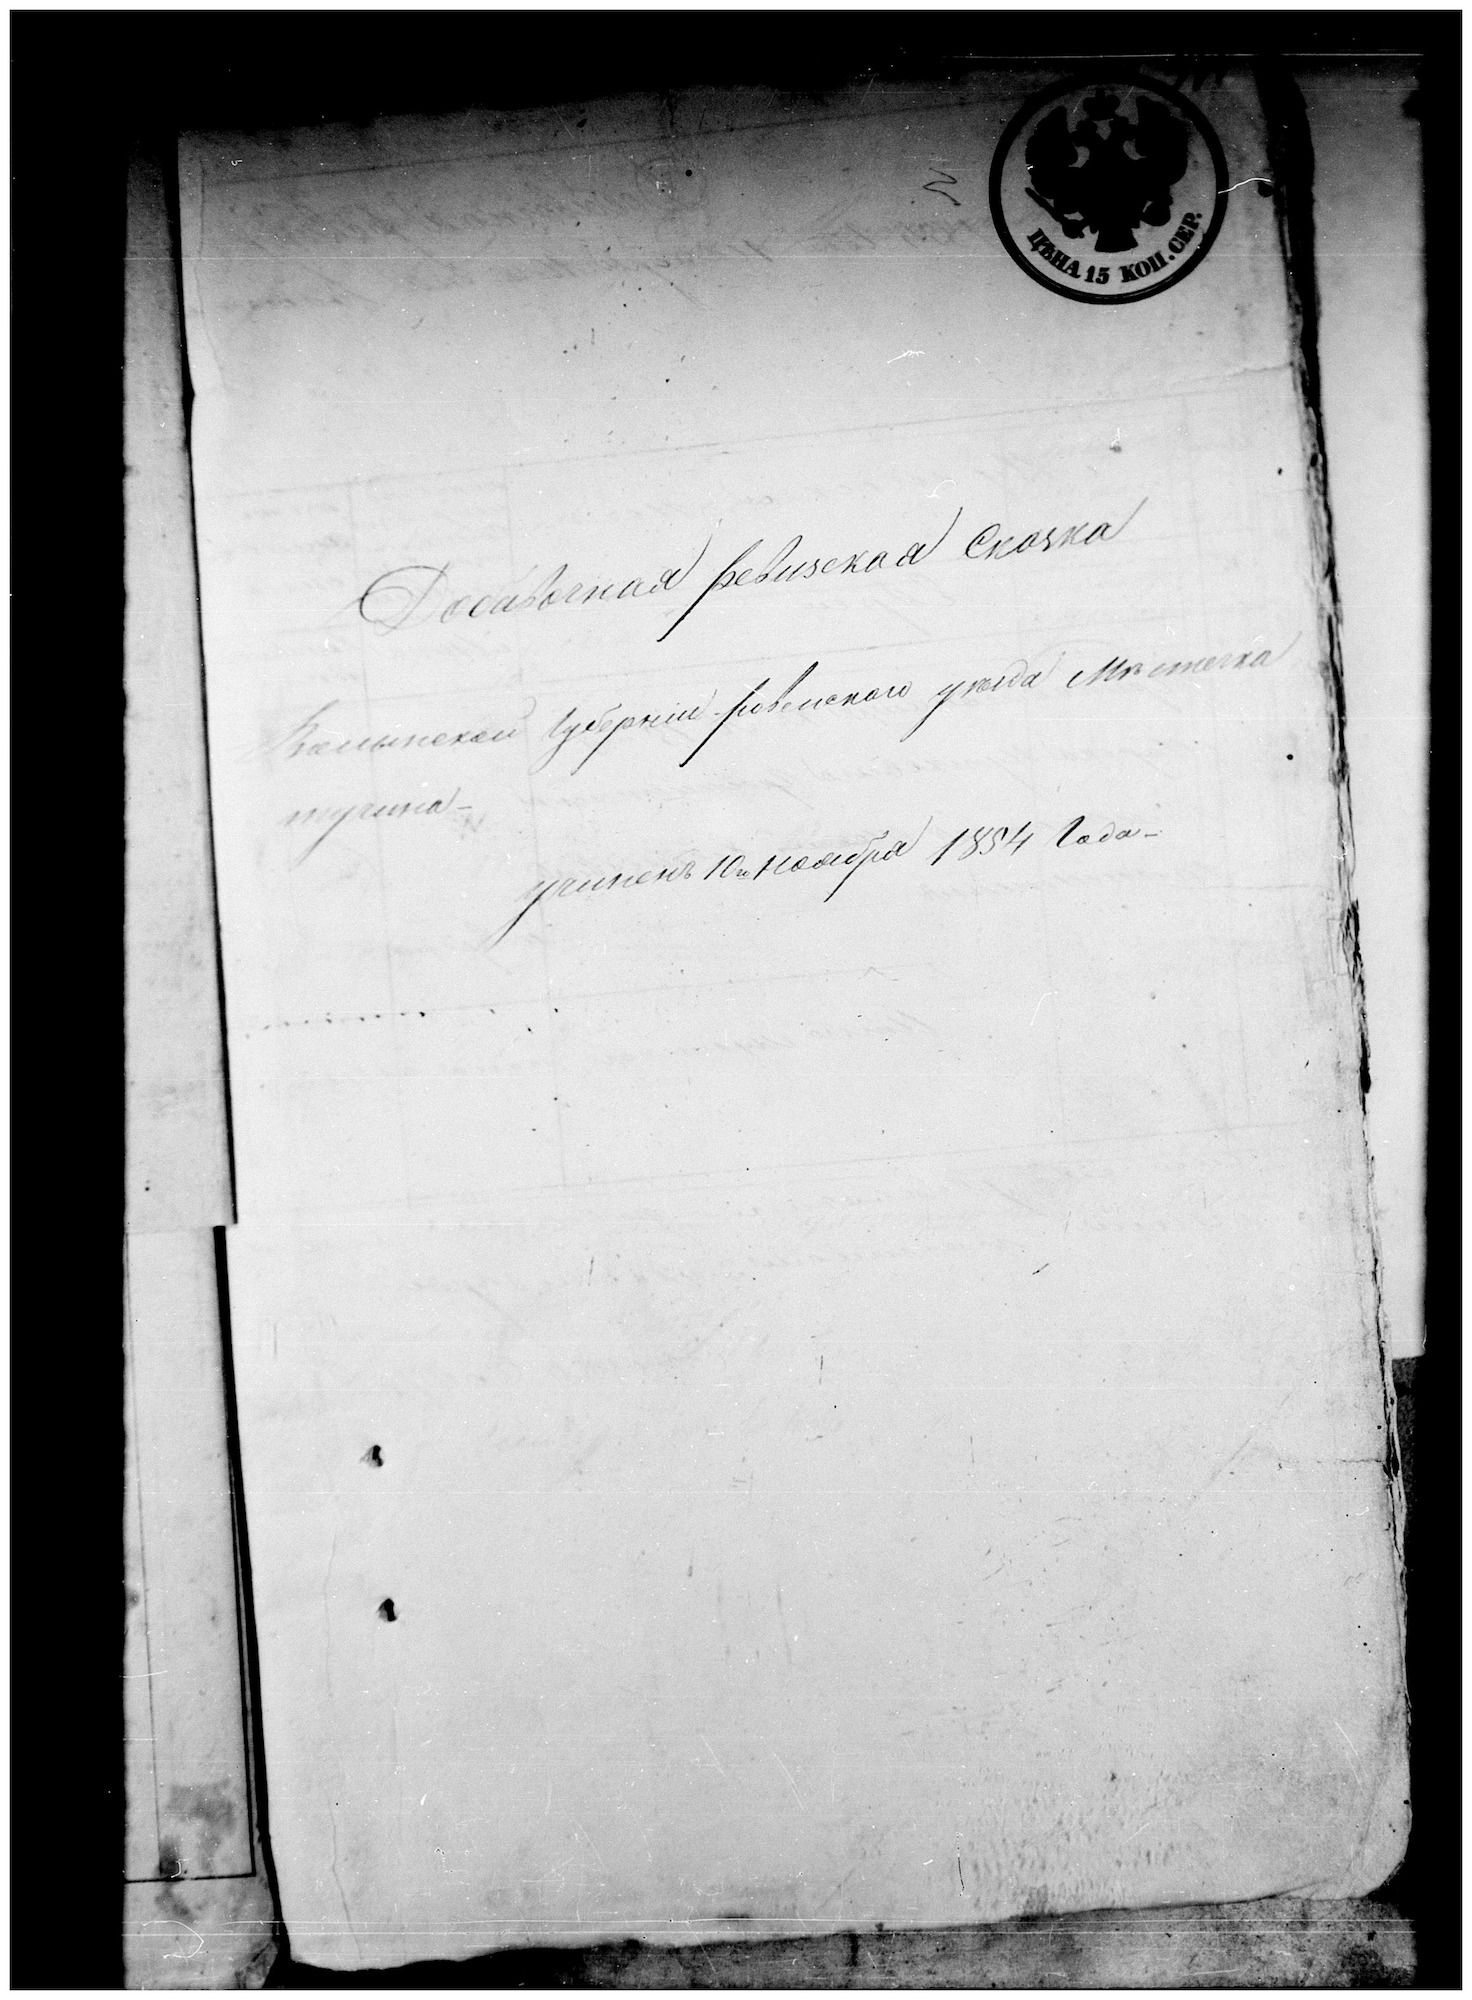 ЦѢНА 15 КОП. СЕР.
Добавочная ревизская Сказка
Волынской Губерніи Ровенского уѣзда Мѣстечка
тучина-
учинена 10го Ноября 1854 Года-